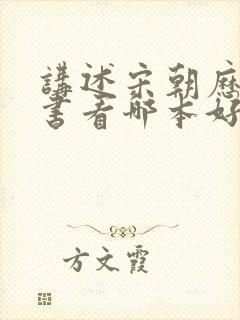 講述宋朝歷
書看哪本好
方文霞